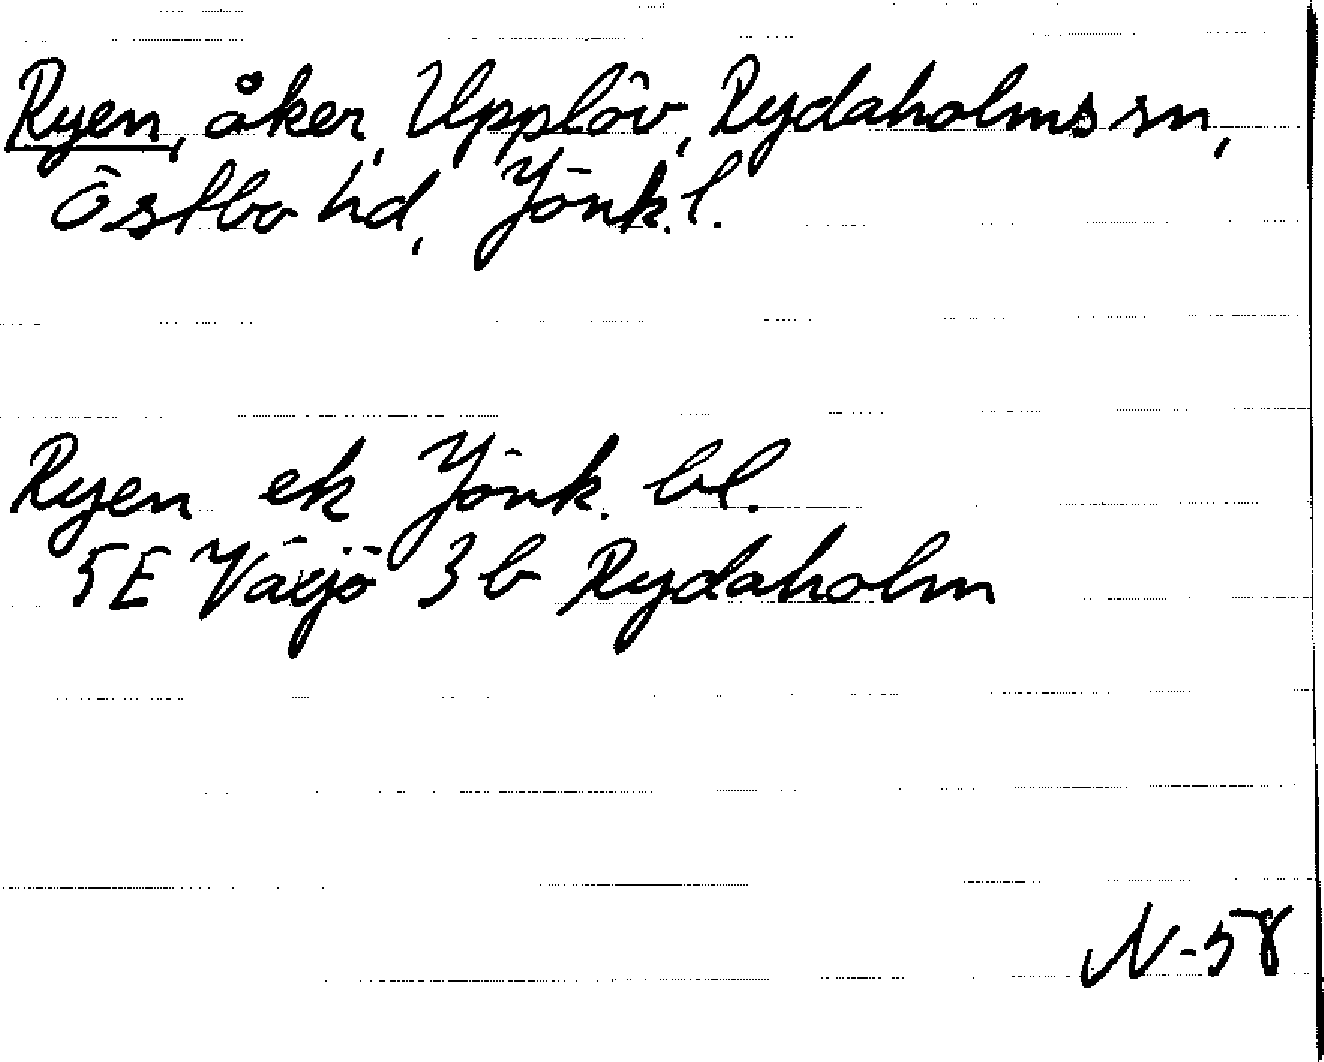 Ryen, åker, Upplöv, Rydaholms sn,
Östbo hd, Jönk. l.
Ryen ek Jönk. bl.
5E Växjö 3b Rydaholm
N-58